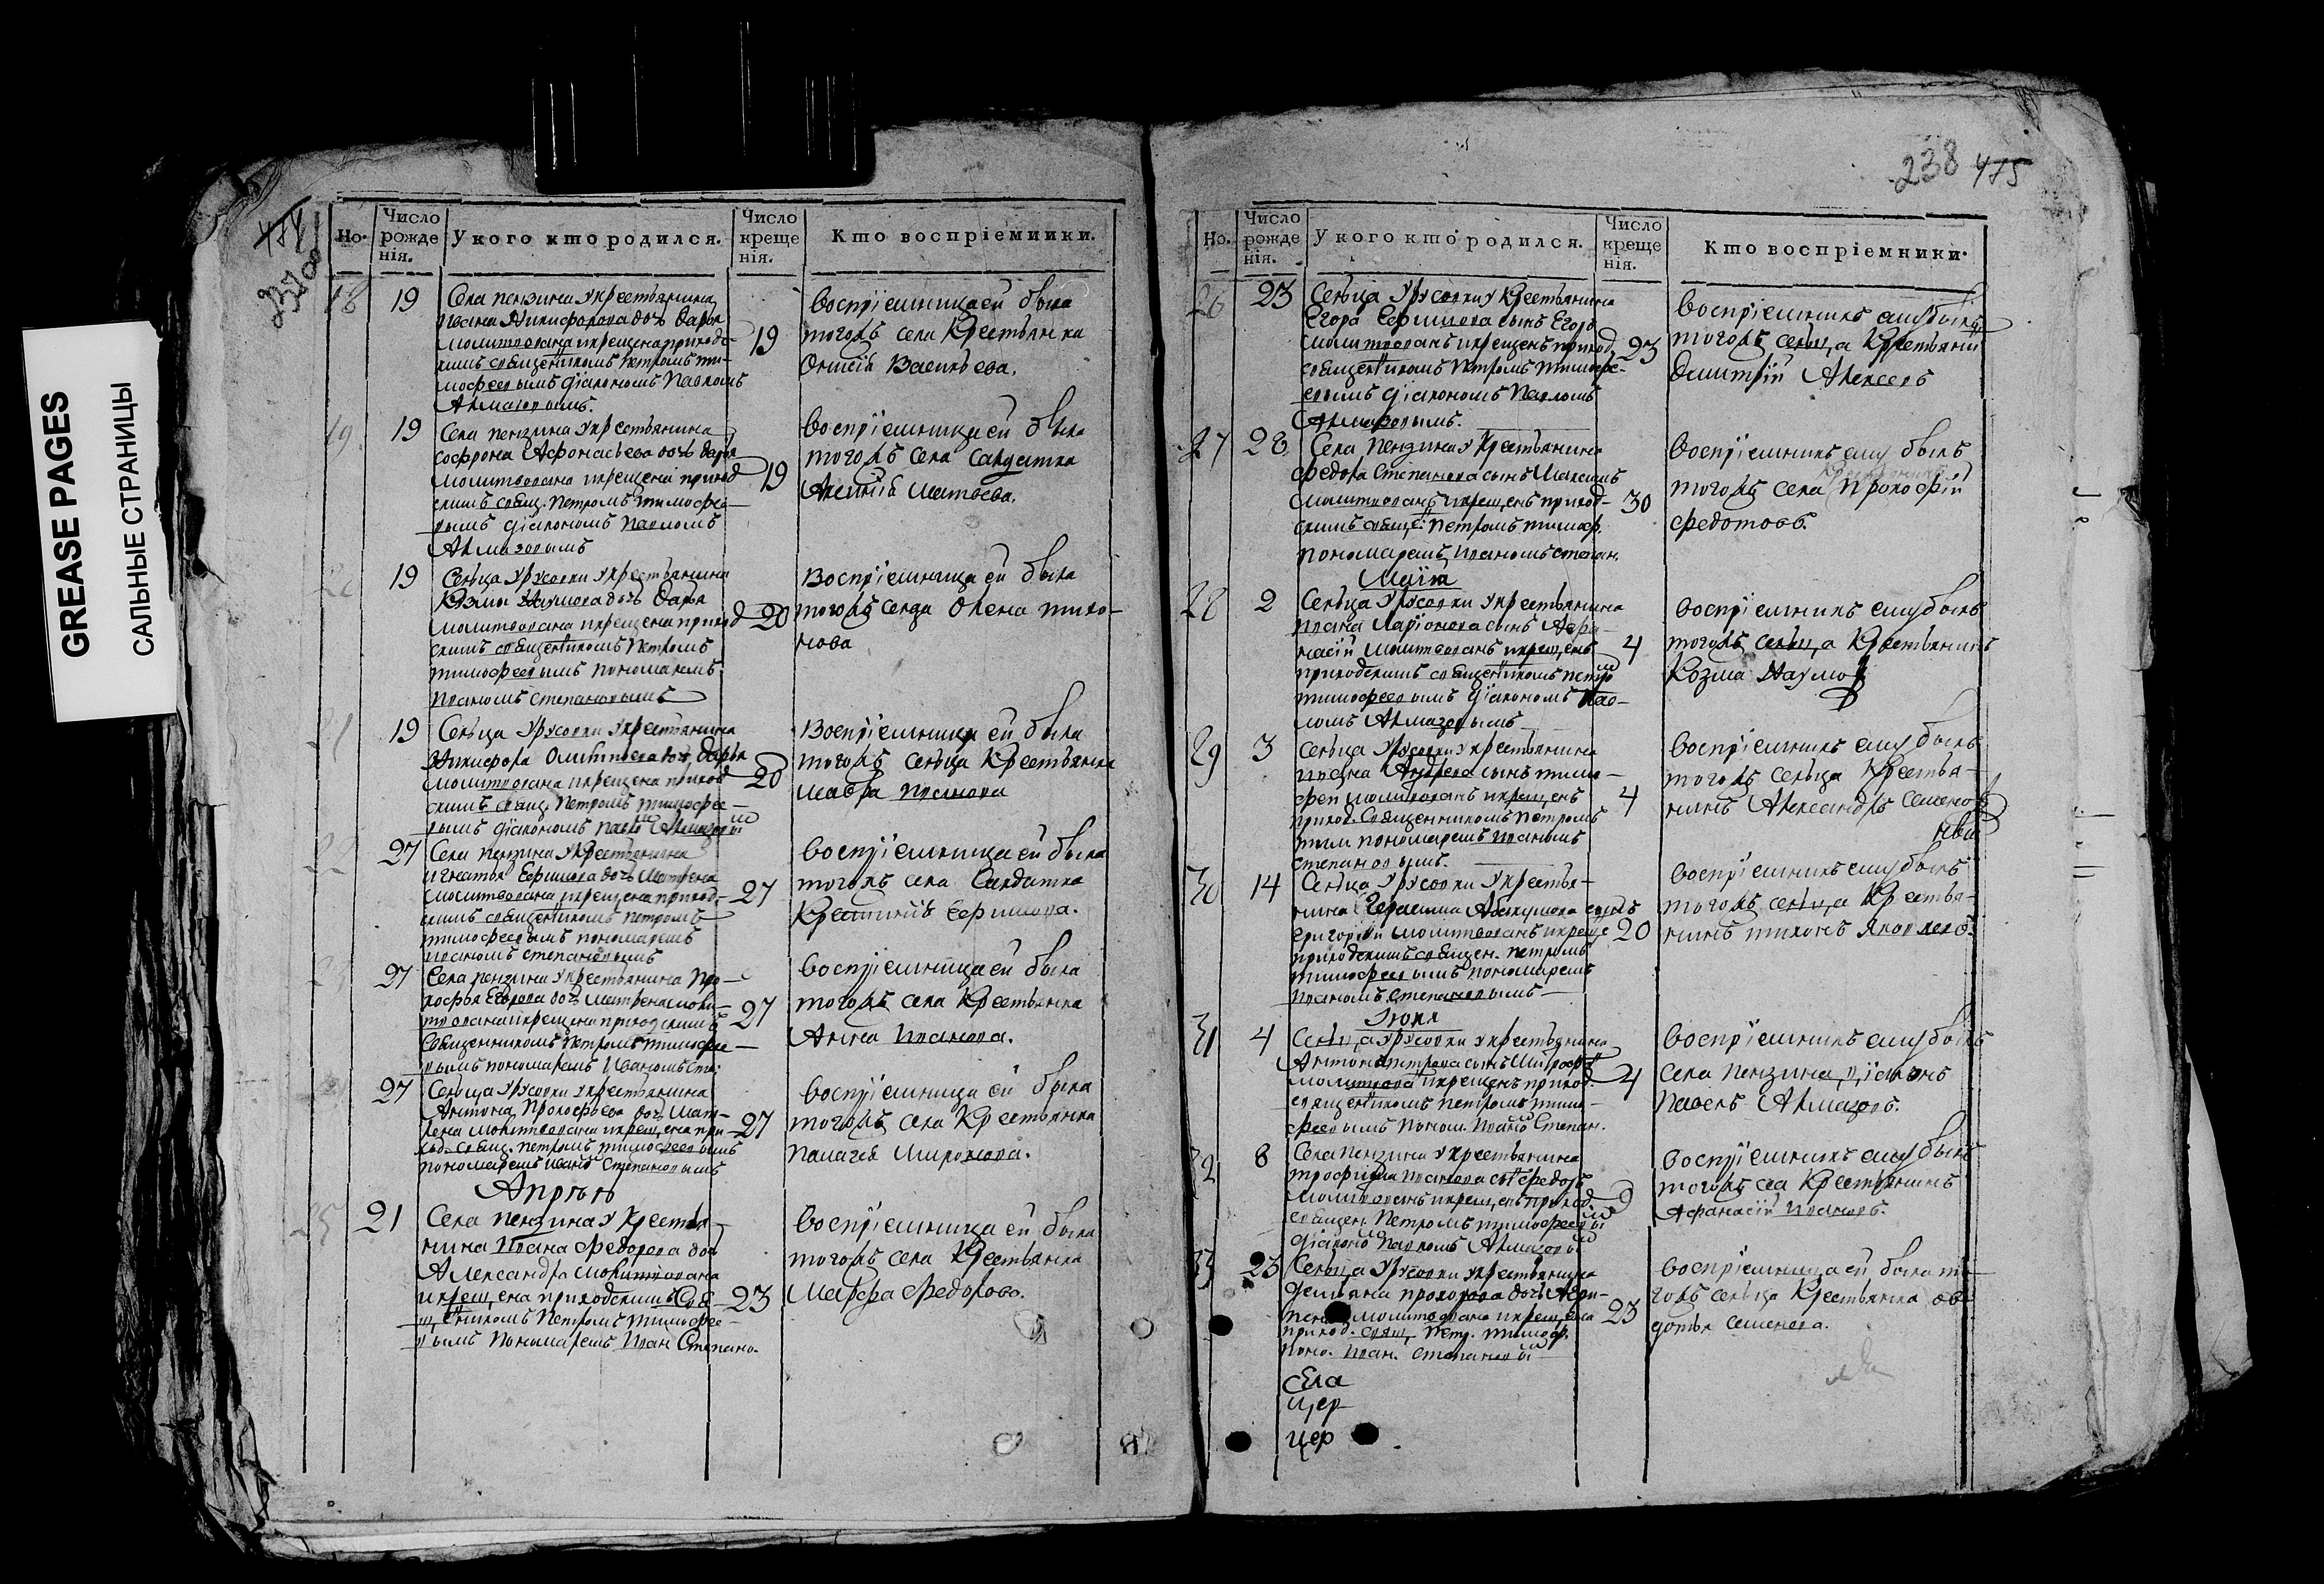 GREASE PAGES
САЛЬНЫЕ СТРАНИЦЫ
238 475
Но. Число рожде нія. У кого кто родился. Число креще нія. Кто воспріемники.
18 19 Села пензина укрестьянина
Ивана Никифорова дочь Дарья
молитвована икрещена приход-
скимъ священикомъ петромъ ти-
мофеевымъ діакономъ Павломъ
Алмазовымъ.
19
воспріемницаей была
тогожъ села Крестьянка
Васильева.
19 19 Села пензина укрестьянина
софрона Афонасьева дочь Дарья
молитвована икрещена приход
скимъ свящ. петромъ тимофее-
вымъ діакономъ павломъ
Алмазовымъ
19
воспріемница ей была
тогожъ села салдатка
Матвева.
19 Сельца Урусовки укрестьянина
Козмы Наумова дочь Дарья
молитвована икрещена приход
скимъ священикомъ петромъ
тимофеевымъ пономаремъ
иваномъ степановымъ
20
воспріемница ей была
тогожъ селца Олена тихо-
нова
21 19 Сельца Урусовки укрестьянина
Никифора дочь Дарья
молитвована икрещена приход
скимъ свящ. петромъ тимофее-
вымъ діакономъ
20
воспріемница ей была
тогожъ сельца Крестьянка
Мавра иванова
27 Села пензина укрестьянина
игнатья Ефимова дочь Матрена
молитвована икрещена приход-
скимъ священикомъ петромъ
тимофеевымъ пономаремъ
иваномъ степановымъ
27
воспріемница ей была
тогожъ села Салдатка
Ефимова.
27 Села пензина укрестьянина Про-
кофья Егорова дочь Матрена моли-
твована икрещена приходскимъ
священникомъ петромъ тимофее-
вымъ пономаремъ Иваномъ сте.
27
воспріемница ей была
тогожъ села Крестьянка
Анна иванова.
27 Сельца Урусовки укрестьянина
Антона Прокофьева дочь Мат-
рена молитвована икрещена при-
ход. свящ. петромъ тимофеевымъ
пономаремъ ивано Степановымъ
27
воспріемница ей была
тогожъ села Крестьянка
палагея Миронова.
25 21 Села пензина у Крестья-
нина ивана Федорова доч
Александра молитвована
икрещена приходскимъ Свя-
щеникомъ петромъ тимофее-
вымъ пономаремъ иван Степано.
23
воспріемница ей была
тогожъ села Крестьянка
Марфа Федорово.
Но. Число рожде нія. У кого кто родился. Число креще нія. Кто воспріемники.
26 23 Сельца Урусовки у Крестьянина
Егора Ефимова сынъ Егоръ
молитвованъ икрещенъ приход
священикомъ петромъ тимофе-
евымъ діакономъ павломъ
Алмазовымъ.
23
воспріемникъ ему былъ
тогожъ сельца Крестьянин
Дмитрій Алексевъ
27 28 Села пензина у Крестьянина
Федора Степанова сынъ Максимъ
молитвованъ икрещенъ приход-
скимъ свяще. петромъ тимоф.
пономаремъ иваномъ степан.
30
воспріемникъ ему былъ
тогожъ села Прокофій
Федотовъ.
Маія
28 2 Сельца Урусовки укрестьянина
ивана Ларіонова сынъ Афа-
насій молитвованъ икрещенъ
приходскимъ священикомъ петро
тимофеевымъ діакономъ пав-
ломъ Алмазовымъ
4
воспріемникъ ему былъ
тогожъ сельца Крестьянинъ
Козма Наумов
29 3 Сельца Урусовки укрестьянина
ивана Андреева сынъ тимо-
фей молитвованъ икрещенъ
приход. Священникомъ петромъ
тим пономаремъ иванымъ
степановымъ.
4
воспріемникъ ему былъ
тогожъ сельца Крестья-
нинъ Александръ Семено
30 14 Сельца Урусовки укрестья-
нина Герасима Абакумова сынъ
григорій молитвованъ икреще
приходскимъ священ. петромъ
тимофеевымъ пономаремъ
иваномъ степановымъ
20
воспріемникъ ему былъ
тогожъ сельца Крестья-
нинъ тихонъ Яковлевъ.
Іюня
31 4 Сельца Урусовки укрестьянина
Антона петрова сынъ Митроф
молитвова икрещенъ приход.
священикомъ петромъ тимо-
феевымъ поном. ивано Степан.
4
воспріемникъ ему былъ
села пензина діаконъ
павелъ Алмазовъ.
32 8 Села пензина укрестьянина
трофима иванова сы Федотъ
молитвованъ икрещенъ приход.
священ. петромъ тимофеевы
діаконо павломъ Алмазовы
9
воспріемникъ ему былъ
тогожъ села Крестьянинъ
Афанасій ивановъ.
33 23 Сельца Урусовки укрестьянина
Демьяна прохорова дочь Агри-
пена молитвована икрещена
приход. свящ. петр. тимоф.
поно. иван. степановы
23
воспріемница ей была то-
гожъ сельца Крестьянка ов-
дотья Семенова.
Села
цер
цер